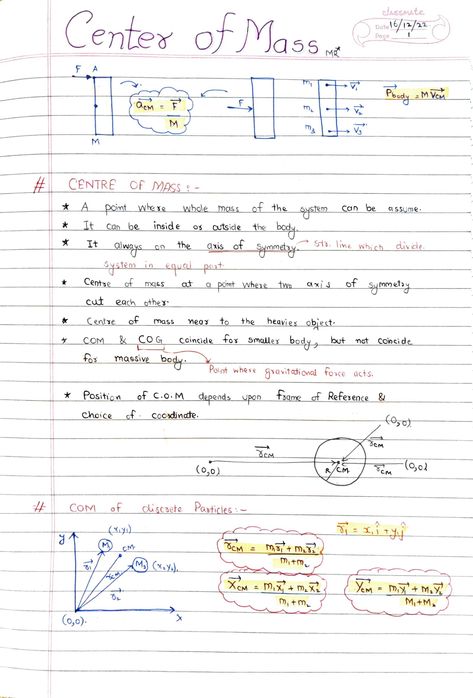 classmate
Date 16/12/22
Page 1
Center of Mass
F A
M
a⃗CM = F⃗/M
F
m₁ v⃗₁
m₂ v⃗₂
m₃ v⃗₃
P⃗body = M V⃗CM
# CENTRE OF MASS :-
* A point where whole mass of the system can be assume.
* It can be inside or outside the body.
* It always on the axis of symmetry. → Str. line which divide
system in equal part
* Centre of mass at a point where two axis of symmetry
cut each other.
* Centre of mass near to the heavier object.
* COM & COG coincide for smaller body, but not coincide
for massive body. → Point where gravitational force acts.
* Position of C.O.M depends upon frame of Reference &
choice of coordinate.
(0,0)
r⃗CM
(0,0) r⃗CM R CM r⃗CM (0,0)
# COM of discrete Particles :-
y (x₁y₁)
M₁ CM
M₂ (x₂y₂)
r⃗₁ rCM r⃗₂
(0,0) x
r⃗CM = m₁r⃗₁ + m₂r⃗₂ / m₁+m₂
r⃗₁ = x₁î + y₁ĵ
X⃗CM = m₁x⃗₁ + m₂x⃗₂ / m₁+m₂
Y⃗CM = m₁y⃗₁ + m₂y⃗₂ / M₁+M₂